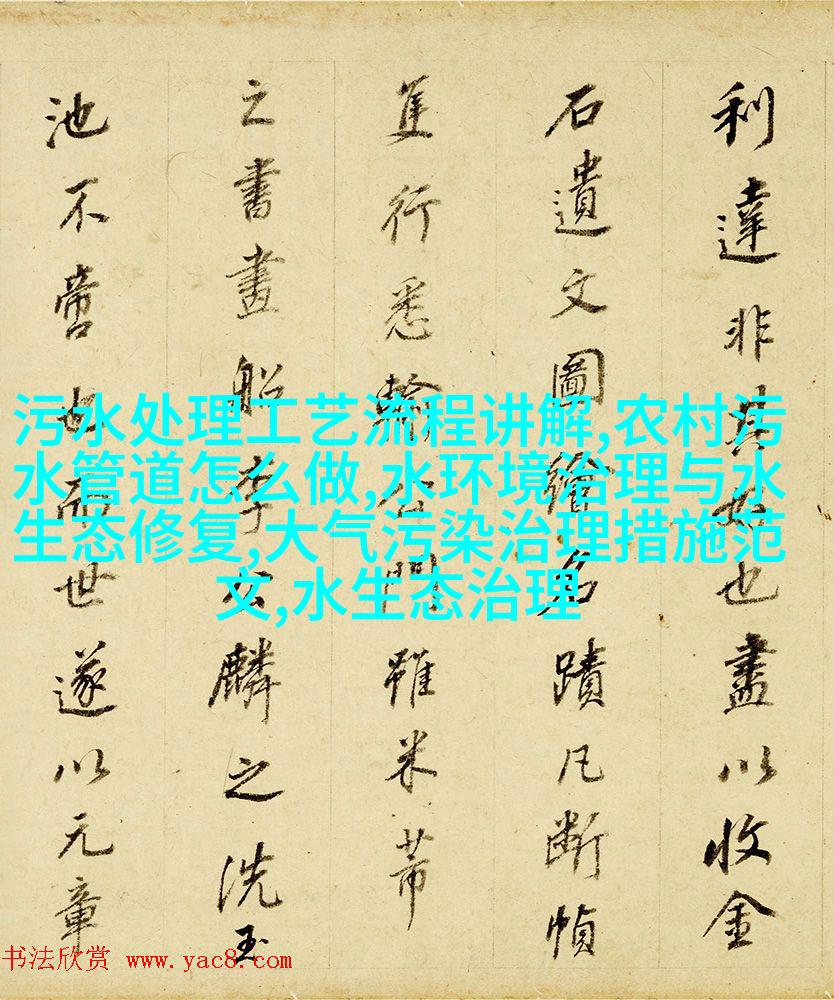 利達非其好也盡以收金
石遺文圖繪名蹟凡斷幀
隻行悉輸公門雖米芾
之書畫船李公麟之洗玉
池不啻也而世遂以元章
污水处理工艺流程讲解,农村污
水管道怎么做,水环境治理与水
生态修复,大气污染治理措施范
文,水生态治理
书法欣赏 www.yac8.com